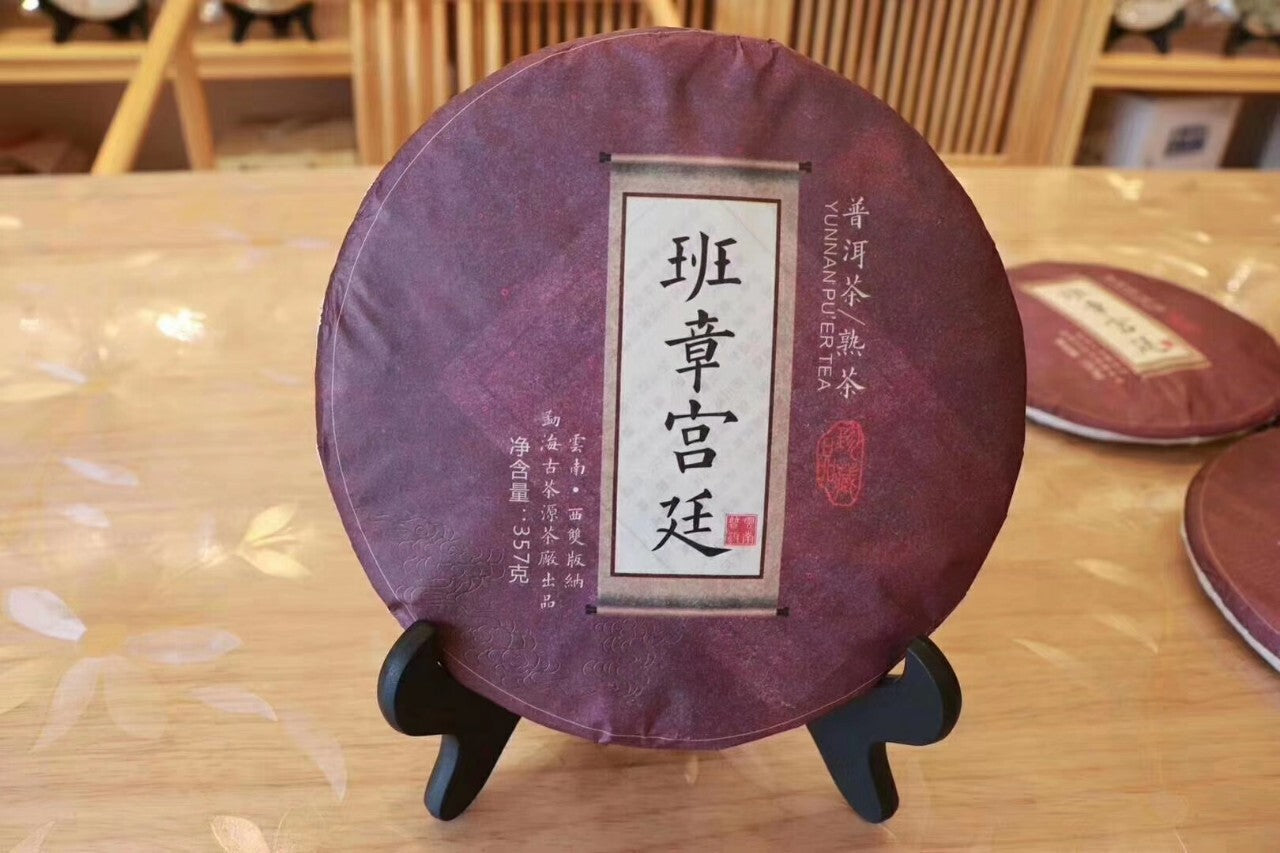 班章宫廷
普洱茶/熟茶
YUNNAN PU'ER TEA
雲南·西雙版納
勐海古茶源茶廠出品
净含量:357克